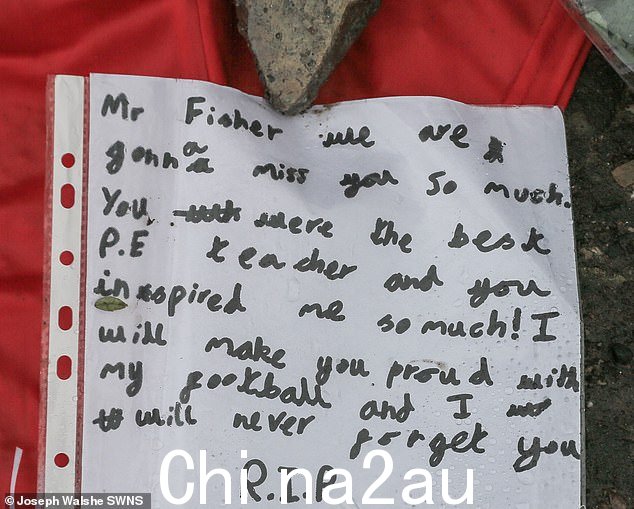 Mr Fisher we are
gonna miss you so much.
You were the best
P.E teacher and you
inspired me so much! I
will make you proud with
my football and I
will never forget you
R.I.P
China2au
© Joseph Walshe SWNS